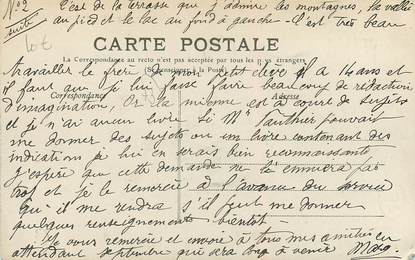 N° 2 C'est de la terrasse que j'admire les montagnes, la vallée
suite au pied et le lac au fond à gauche - C'est très beau
CARTE POSTALE
La Correspondance au recto n'est pas acceptée par tous les pays étrangers
(Se renseigner à la Poste)
Correspondance Adresse
travailler le frère de mon petit élève il a 14 ans et
il faut que je lui fasse faire beaucoup de rédactions
d'imagination, Or la mienne est à court de sujets
et je n'ai aucun livre si Mr Gauthier pouvait
me donner des sujets ou un livre contenant des
indications je lui en serais bien reconnaissante
j'espère que cette demande ne l'ennuiera pas
trop et je le remercie à l'avance du service
qu'il me rendra s'il peut me donner
quelques renseignements bientôt -
Je vous remercie et envoie à tous mes amitiés en
attendant septembre qui sera long à venir Marg.